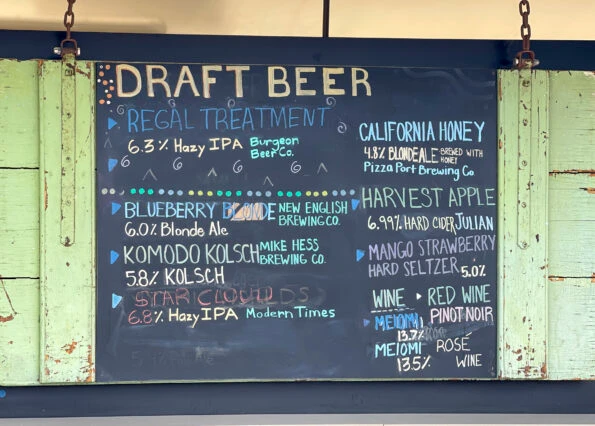 DRAFT BEER
REGAL TREATMENT
6.3% Hazy IPA Burgeon
Beer Co.
BLUEBERRY BLONDE NEW ENGLISH
BREWING CO.
6.0% Blonde Ale
KOMODO KOLSCH MIKE HESS
BREWING CO.
5.8% KOLSCH
STAR CLOUDS
6.8% Hazy IPA Modern Times
CALIFORNIA HONEY
4.8% BLONDE ALE BREWED WITH
HONEY
Pizza Port Brewing Co
HARVEST APPLE
6.99% HARD CIDER JULIAN
MANGO STRAWBERRY
HARD SELTZER 5.0%
WINE RED WINE
MEIOMI PINOT NOIR
13.7%
MEIOMI ROSÉ
13.5% WINE